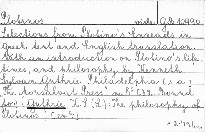 Plotinos vide GB 10490
Selections from Plotino's Enneads in
Greek text and English translation.
With an introduction on Plotino's life,
times, and philosophy by Kenneth
Sylvan Guthrie. Philadelphia (s.a.)
The Monsalvat Press in 8°. Bound
for: Guthrie K. S. The philosophy of
Plotinos